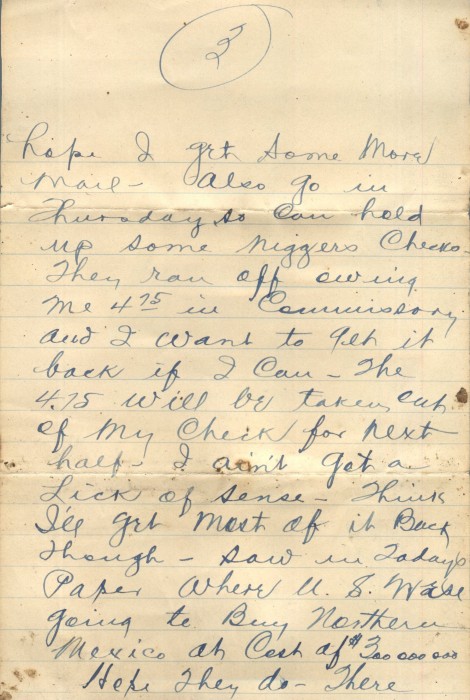 3
hope I get some more
mail - Also go in
Thursday so can hold
up some niggers Checks -
They ran off owing
me 4 75 in Commissary
and I want to get it
back if I Can - The
4.75 will be taken out
of my Check for next
half - I ain't got a
Lick of sense - Think
I'll get most of it Back
though - saw in Today's
Paper where U. S. was
going to Buy Northern
Mexico at Cost of $300 000 000
Hope They do - There